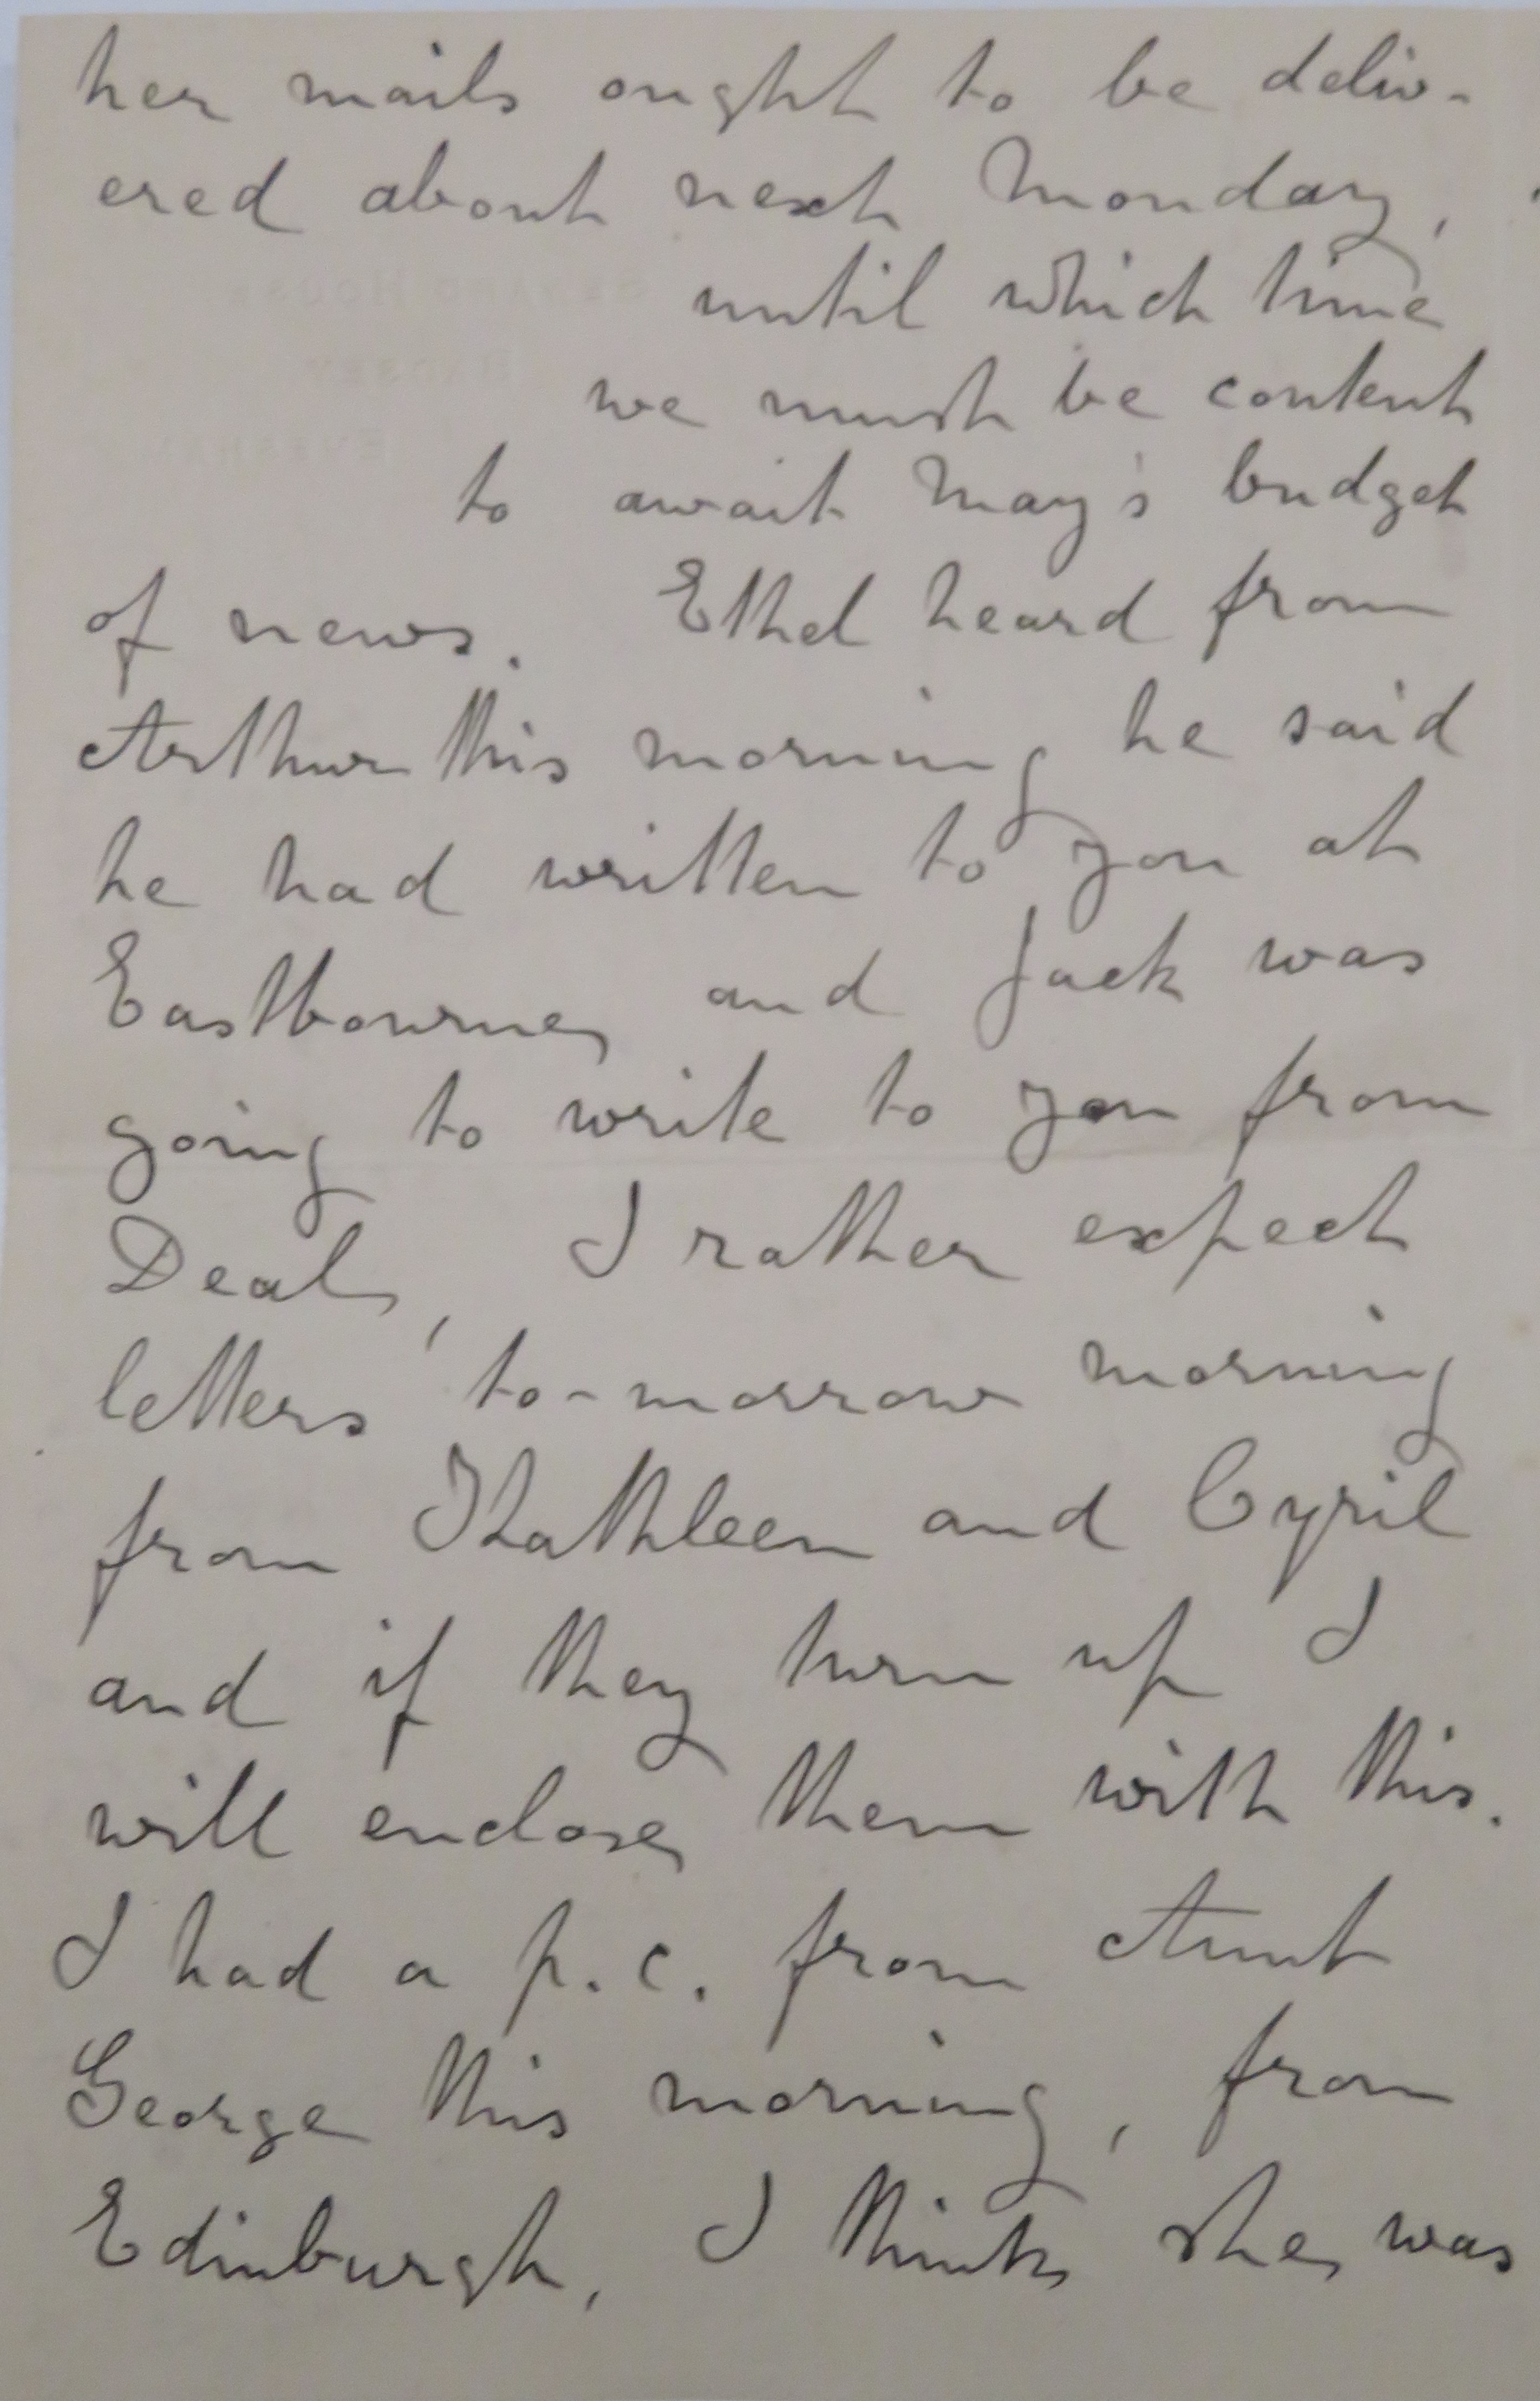 her mails ought to be deliv-
ered about next Monday,
until which time
we must be content
to await May's budget
of news. Ethel heard from
Arthur this morning he said
he had written to you at
Eastbourne, and Jack was
going to write to you from
Deal, I rather expect
letters to-morrow morning
from Kathleen and Cyril
and if they turn up I
will enclose them with this.
I had a p.c. from Aunt
George this morning, from
Edinburgh, I think she was